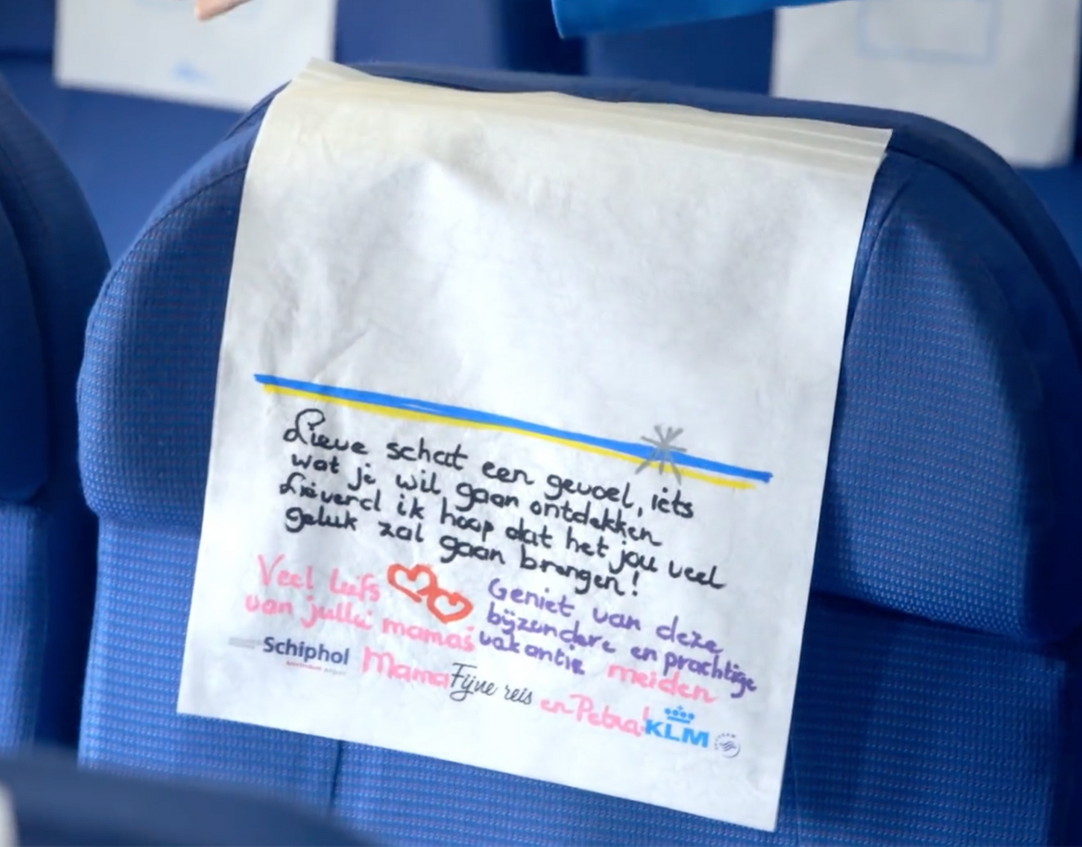 Lieve schat een gevoel, iets
wat je wil gaan ontdekken
Lieverd ik hoop dat het jou veel
geluk zal gaan brengen!
Veel liefs
van jullie mamas
Geniet van deze
bijzondere en prachtige
vakantie meiden
Schiphol
Mama
Fijne reis
en Petra!
KLM